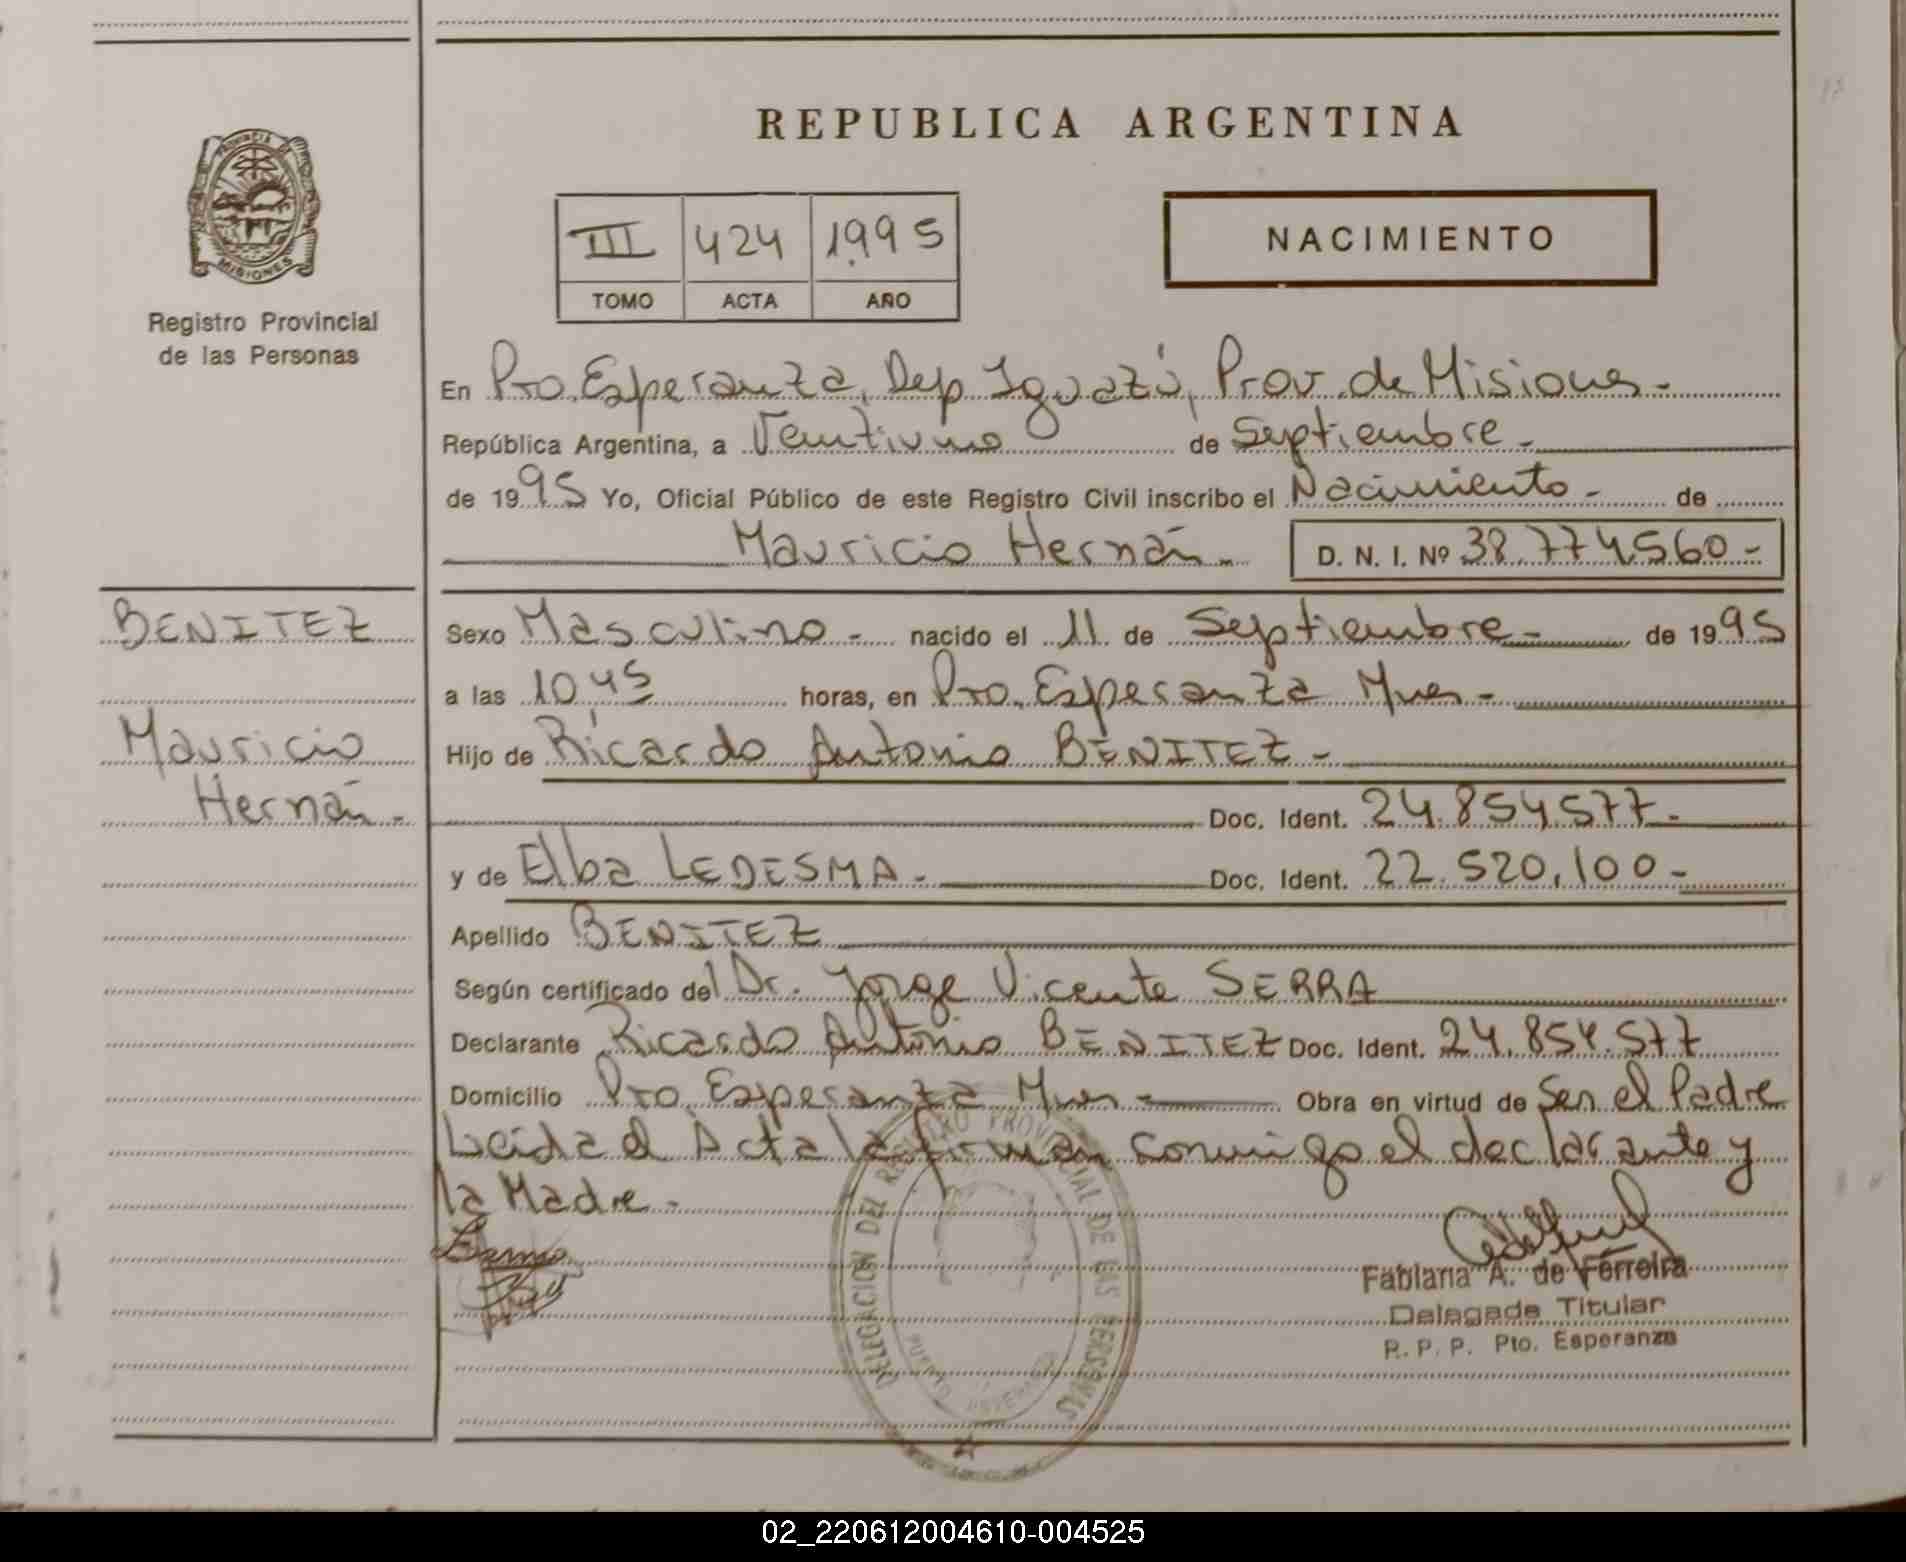 REPUBLICA ARGENTINA
PROVINCIA DE MISIONES
Registro Provincial
de las Personas
III 424 1.995
TOMO ACTA AÑO
NACIMIENTO
En Pto. Esperanza, Dep Iguazú, Prov. de Misiones.-
República Argentina, a Veintiuno de Septiembre.-
de 1995 Yo, Oficial Público de este Registro Civil inscribo el Nacimiento.- de
Mauricio Hernán.- D. N. I. Nº 38.774.560.-
BENITEZ
Mauricio
Hernán.-
Sexo Masculino.- nacido el 11 de Septiembre.- de 1995
a las 10,45 horas, en Pto. Esperanza Mnes.-
Hijo de Ricardo Antonio BENITEZ.-
Doc. Ident. 24.854.577.-
y de Elba LEDESMA.- Doc. Ident. 22.520.100.-
Apellido BENITEZ
Según certificado del Dr. Jorge Vicente SERRA
Declarante Ricardo Antonio BENITEZ Doc. Ident. 24.854.577
Domicilio Pto. Esperanza Mnes.- Obra en virtud de Ser el Padre
Leida el Acta la firman conmigo el declarante y
la Madre.-
DELEGACION DEL REGISTRO PROVINCIAL DE LAS PERSONAS
PUERTO ESPERANZA
Fabiana A. de Ferreira
Delegada Titular
R. P. P. Pto. Esperanza
02_220612004610-004525